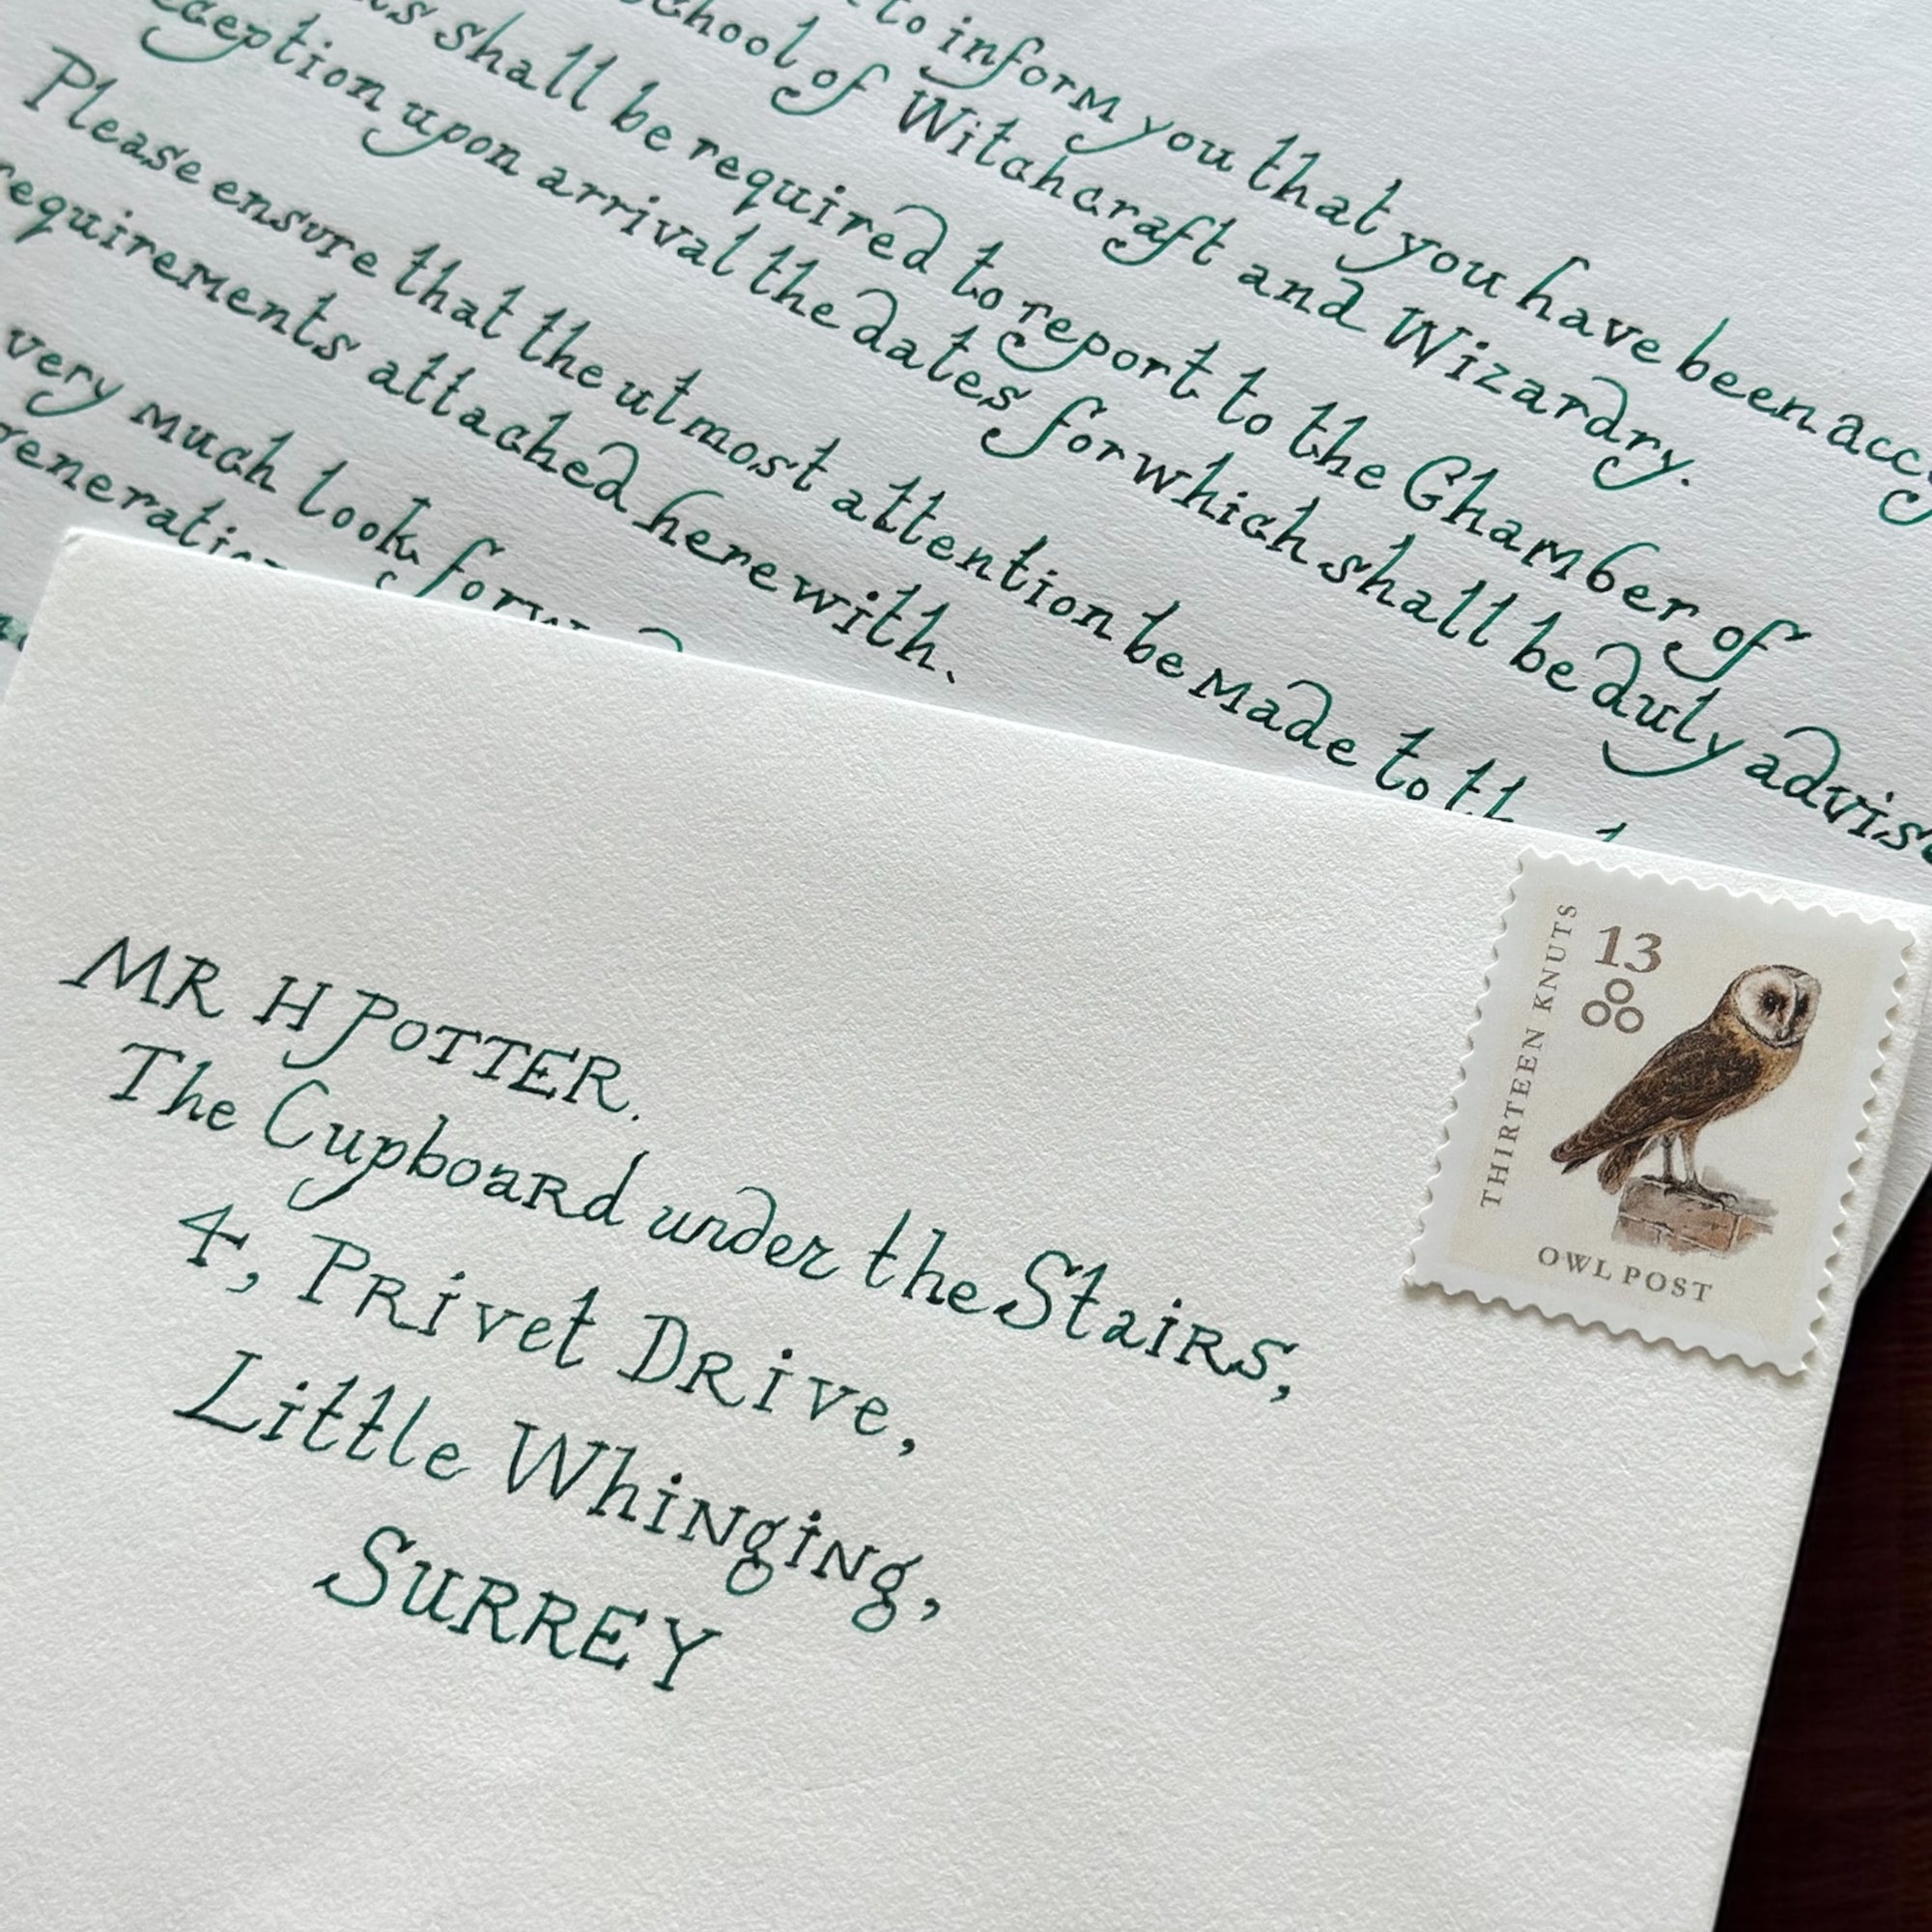 to inform you that you have been
School of Witchcraft and Wizardry.
shall be required to report to the Chamber of
upon arrival the dates for which shall be duly
Please ensure that the utmost attention be made to
requirements attached herewith.
very much look
MR H POTTER.
The Cupboard under the Stairs,
4, Privet Drive,
Little Whinging,
SURREY
13
THIRTEEN KNUTS
OWL POST